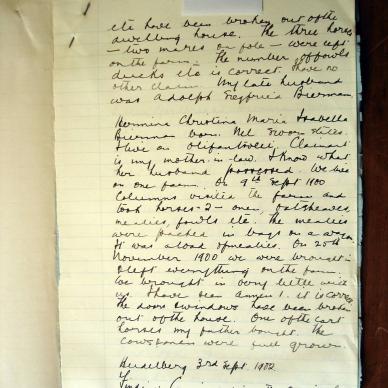 etc have been broken out of the
dwelling house. The three horses
— two mares one foal — were left
on the farm. The number of fowls
ducks etc is correct. I have no
other claim. My late husband
was Adolph Siegfried Bierman
Hermina Christina Maria Isabella
Bierman born Nel Sworn States.
I live on Olifantsvlei. Claimant
is my mother-in-law. I know what
her husband possessed. We live
on one farm. On 9th Sept 1900
Columns visited the farm and
took horses – 2 – oxen, oatsheaves
mealies, fowls etc. The mealies
were packed in bags on a wagon
It was a load of mealies. On 20th
November 1900 we were brought in
& left everything on the farm.
We brought in very little with
us. I have seen annex 1. It is correct
The doors & windows have been broken
out of the house. One of the cart
horses my father bought. The
cows & oxen were full grown.
Heidelberg 3rd Sept. 1902.